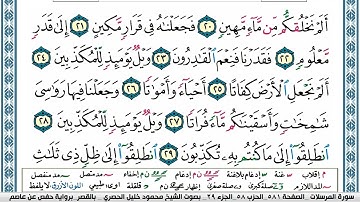 أَلَمْ نَخْلُقكُّم مِّن مَّآءٍ مَّهِينٍ ٢٠ فَجَعَلْنَٰهُ فِى قَرَارٍ مَّكِينٍ ٢١ إِلَىٰ قَدَرٍ
مَّعْلُومٍ ٢٢ فَقَدَرْنَا فَنِعْمَ ٱلْقَٰدِرُونَ ٢٣ وَيْلٌ يَوْمَئِذٍ لِّلْمُكَذِّبِينَ ٢٤
أَلَمْ نَجْعَلِ ٱلْأَرْضَ كِفَاتًا ٢٥ أَحْيَآءً وَأَمْوَٰتًا ٢٦ وَجَعَلْنَا فِيهَا رَوَٰسِىَ
شَٰمِخَٰتٍ وَأَسْقَيْنَٰكُم مَّآءً فُرَاتًا ٢٧ وَيْلٌ يَوْمَئِذٍ لِّلْمُكَذِّبِينَ ٢٨
ٱنطَلِقُوٓا۟ إِلَىٰ مَا كُنتُم بِهِۦ تُكَذِّبُونَ ٢٩ ٱنطَلِقُوٓا۟ إِلَىٰ ظِلٍّ ذِى ثَلَٰثِ
سورة المرسلات الصفحة ٥٨١ الحزب ٥٨ الجزء ٢٩ بصوت الشيخ محمود خليل الحصري بالقصر برواية حفص عن عاصم